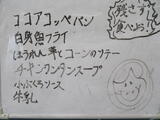 ココアコッペパン
白身魚フライ
ほうれん草とコーンのソテー
チキンワンタンスープ
小ぶくろソース
牛乳
残さず
食べよう!